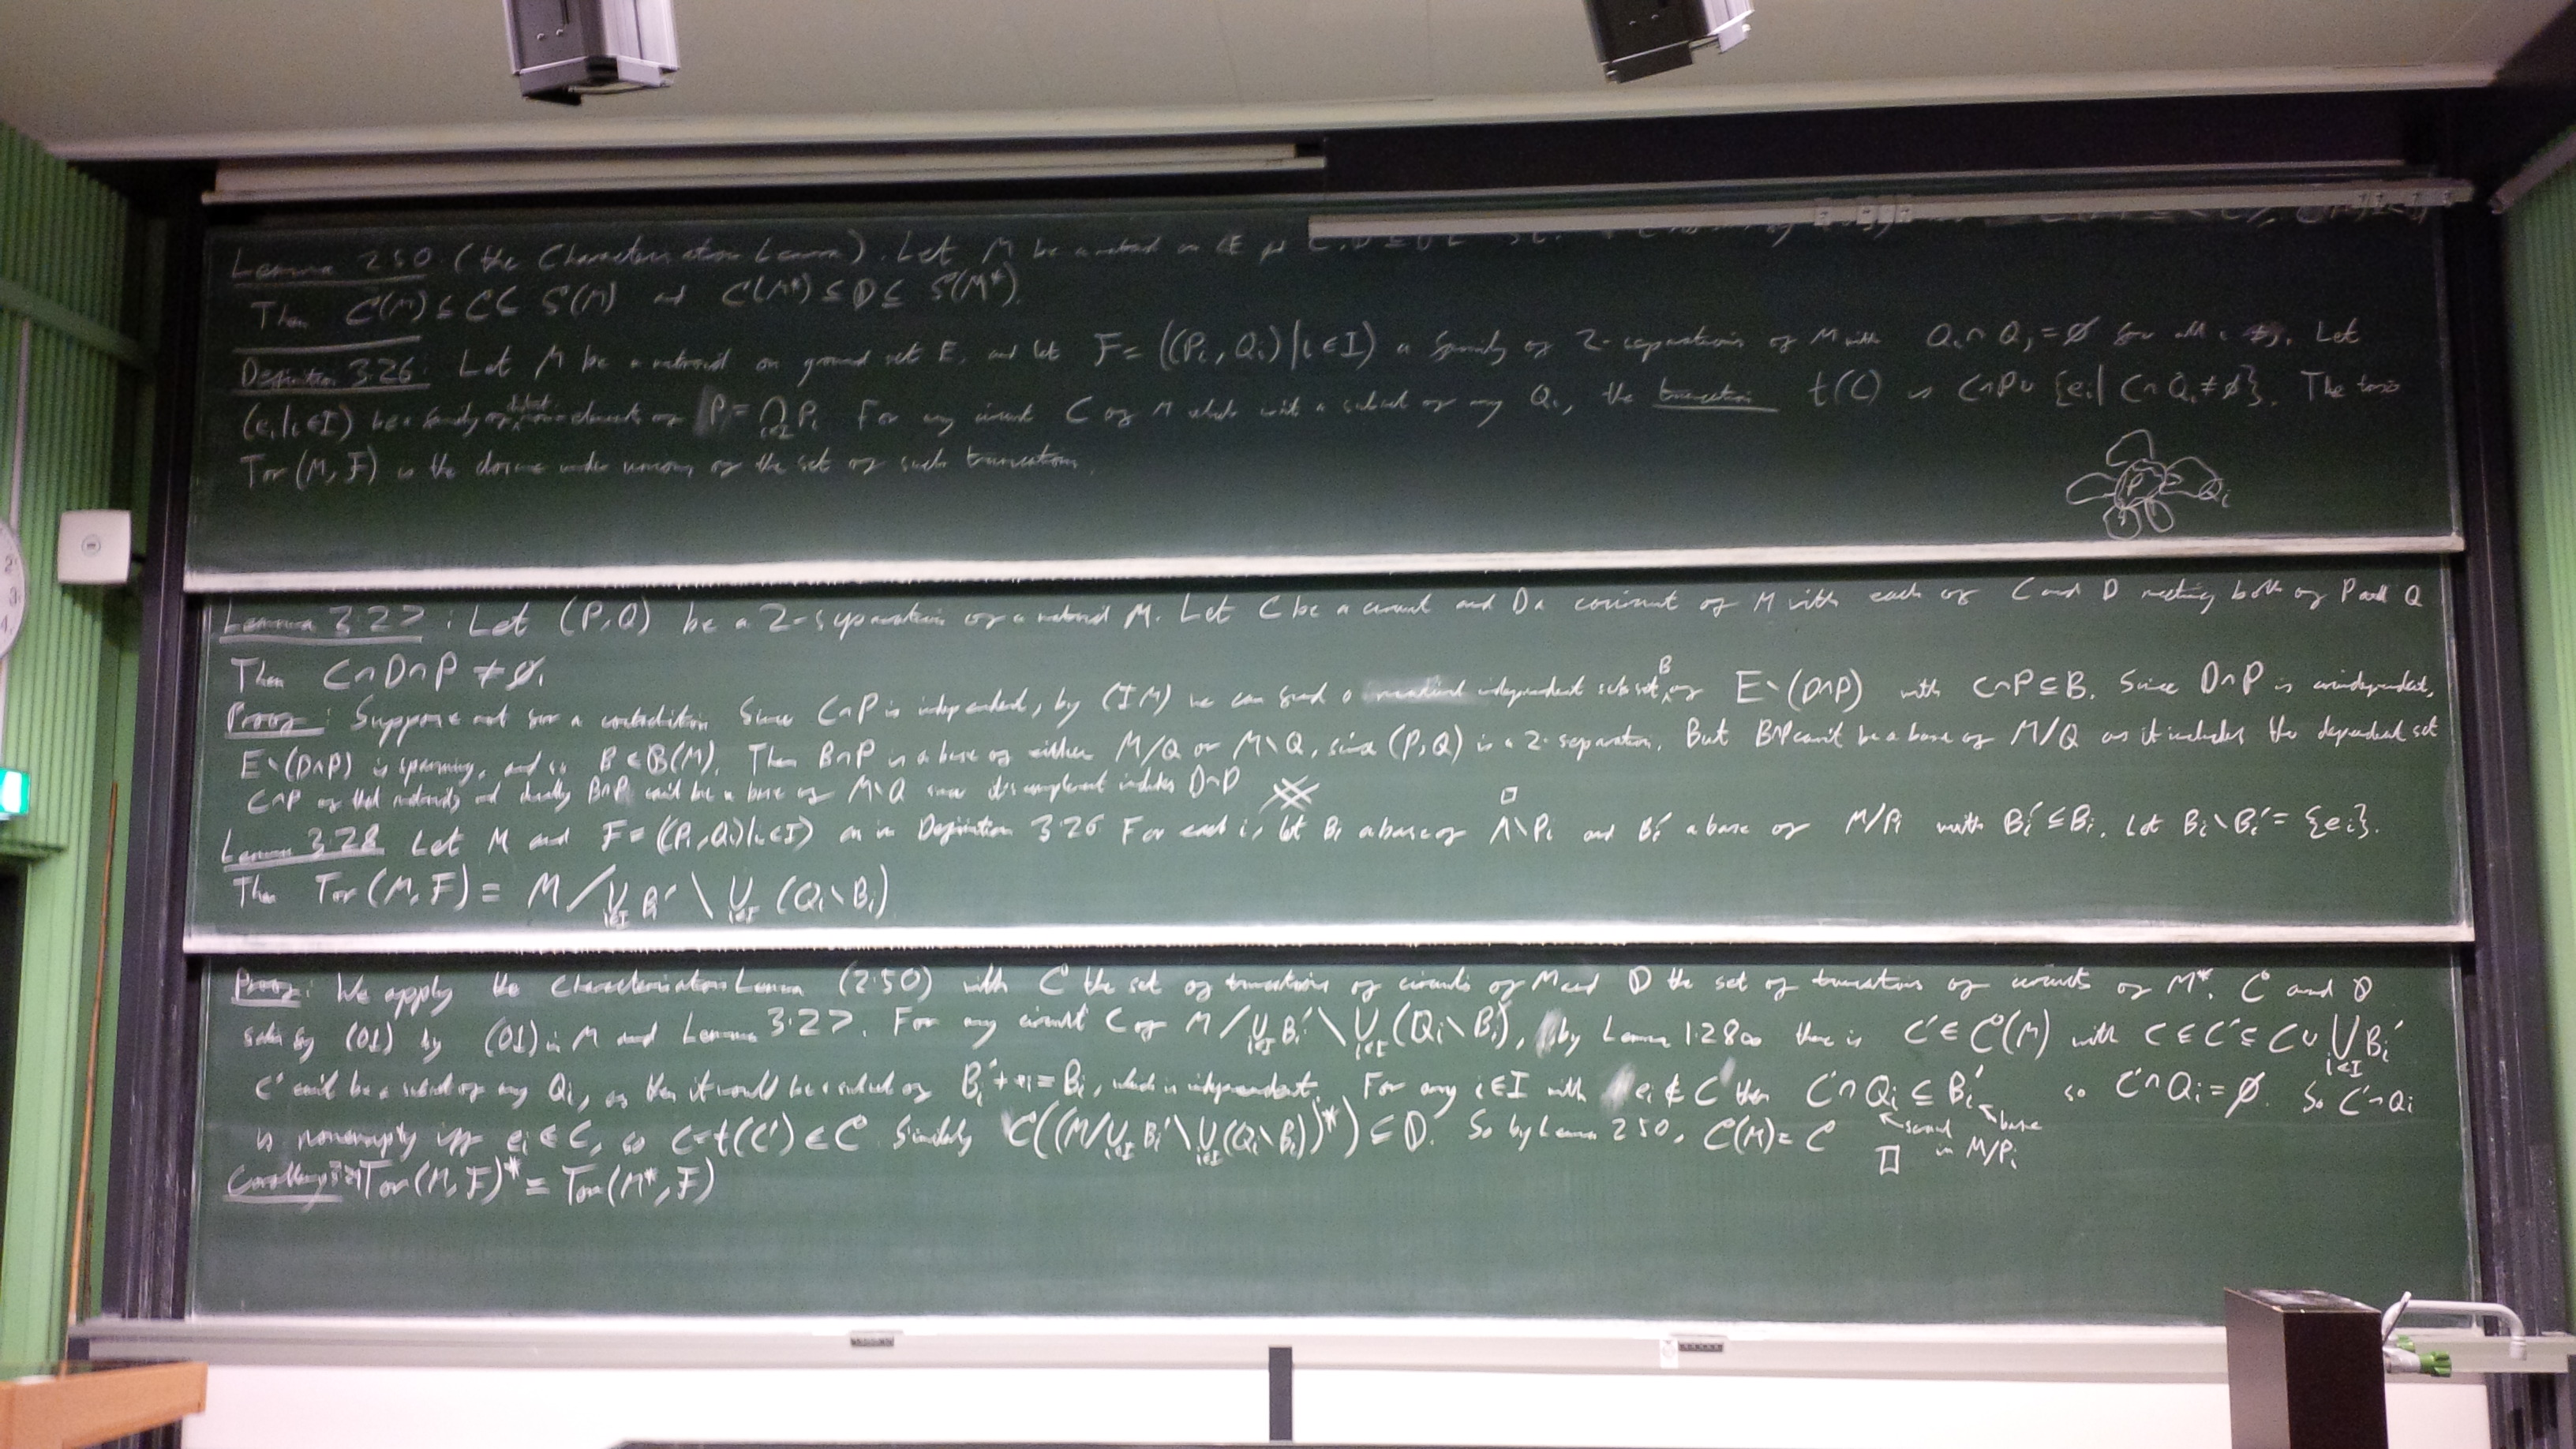 Lemma 2.50 (the Characterisation Lemma). Let M be a matroid on E
Then C(M) ⊆ C ⊆ S(M) and C(M*) ⊆ D ⊆ S(M*).
Definition 3.26: Let M be a matroid on ground set E, and let F = ((Pi, Qi) | i ∈ I) a family of 2-separations of M with Qi ∩ Qj = ∅ for all i ≠ j. Let
(ei | i ∈ I) be a family of distinct non-elements of P = ⋂_{i∈I} Pi. For any circuit C of M which isn't a subset of any Qi, the truncation t(C) is C∩P ∪ {ei | C ∩ Qi ≠ ∅}. The torso
Tor(M, F) is the closure under unions of the set of such truncations.
P Qi
Lemma 3.27: Let (P,Q) be a 2-separation of a matroid M. Let C be a circuit and D a cocircuit of M with each of C and D meeting both of P and Q
Then C∩D∩P ≠ ∅.
Proof: Suppose not for a contradiction. Since C∩P is independent, by (IM) we can find a maximal independent subset B of E∖(D∩P) with C∩P ⊆ B. Since D∩P is coindependent,
E∖(D∩P) is spanning, and so B ∈ B(M). Then B∩P is a base of either M/Q or M∖Q, since (P,Q) is a 2-separation. But B∩P can't be a base of M/Q as it includes the dependent set
C∩P of that matroid, and dually B∩P can't be a base of M∖Q since its complement includes D∩P
□
Lemma 3.28 Let M and F = ((Pi, Qi) | i ∈ I) as in Definition 3.26 For each i, let Bi a base of M∖Pi and Bi' a base of M/Pi with Bi' ⊆ Bi. Let Bi∖Bi' = {ei}.
Then Tor(M, F) = M / ⋃_{i∈I} Bi' ∖ ⋃_{i∈I} (Qi∖Bi)
Proof: We apply the Characterisation Lemma (2.50) with C the set of truncations of circuits of M and D the set of truncations of circuits of M*. C and D
satisfy (O1) by (O1) in M and Lemma 3.27. For any circuit C of M / ⋃_{i∈I} Bi' ∖ ⋃_{i∈I} (Qi∖Bi), by Lemma 1.28 there is C' ∈ C(M) with C ⊆ C' ⊆ C ∪ ⋃_{i∈I} Bi'
C' can't be a subset of any Qi, as then it would be a subset of Bi' + ei = Bi, which is independent. For any i ∈ I with ei ∉ C then C'∩Qi ⊆ Bi' so C'∩Qi = ∅. So C'∩Qi
scrawl base
is nonempty iff ei ∈ C, so C = t(C') ∈ C Similarly C((M/⋃_{i∈I} Bi' ∖ ⋃_{i∈I} (Qi∖Bi))*) ⊆ D. So by Lemma 2.50, C(M) = C □ in M/Pi
Corollary Tor(M, F)* = Tor(M*, F)